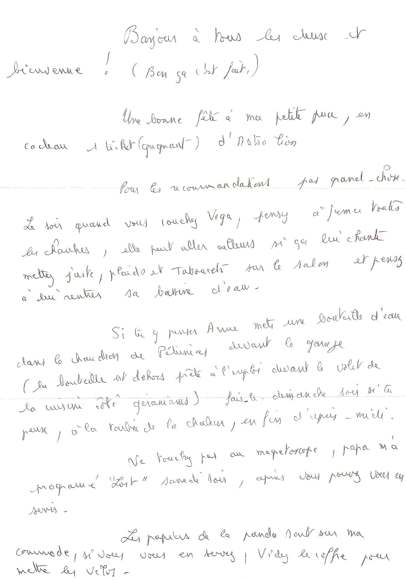 Bonjour à tous les deux et
bienvenue ! (Bon ça c'est fait,)
Une bonne fête à ma petite puce, en
cadeau 1 ticket (gagnant) d'Astro Lion
Pour les recommandations pas grand-chose.
Le soir quand vous couchez Vega, pensez à fermer toutes
les chambres, elle peut aller ailleurs si ça lui chante
mettez juste, plaids et Tabourets sur le salon et pensez
à lui rentrer sa bassine d'eau.
Si tu y penses Anne mets une bouteille d'eau
dans le chaudron de Pétunias devant le garage
(la bouteille est dehors prête à l'emploi devant le volet de
la cuisine côté géraniums) fais-le dimanche soir si tu
peux, à la tombée de la chaleur, en fin d'après-midi.
Ne touchez pas au magnétoscope, papa m'a
programé "Lost" samedi soir, après vous pouvez vous en
servir.
Les papiers de la panda sont sur ma
commode, si vous vous en servez, Videz le coffre pour
mettre les vélos.